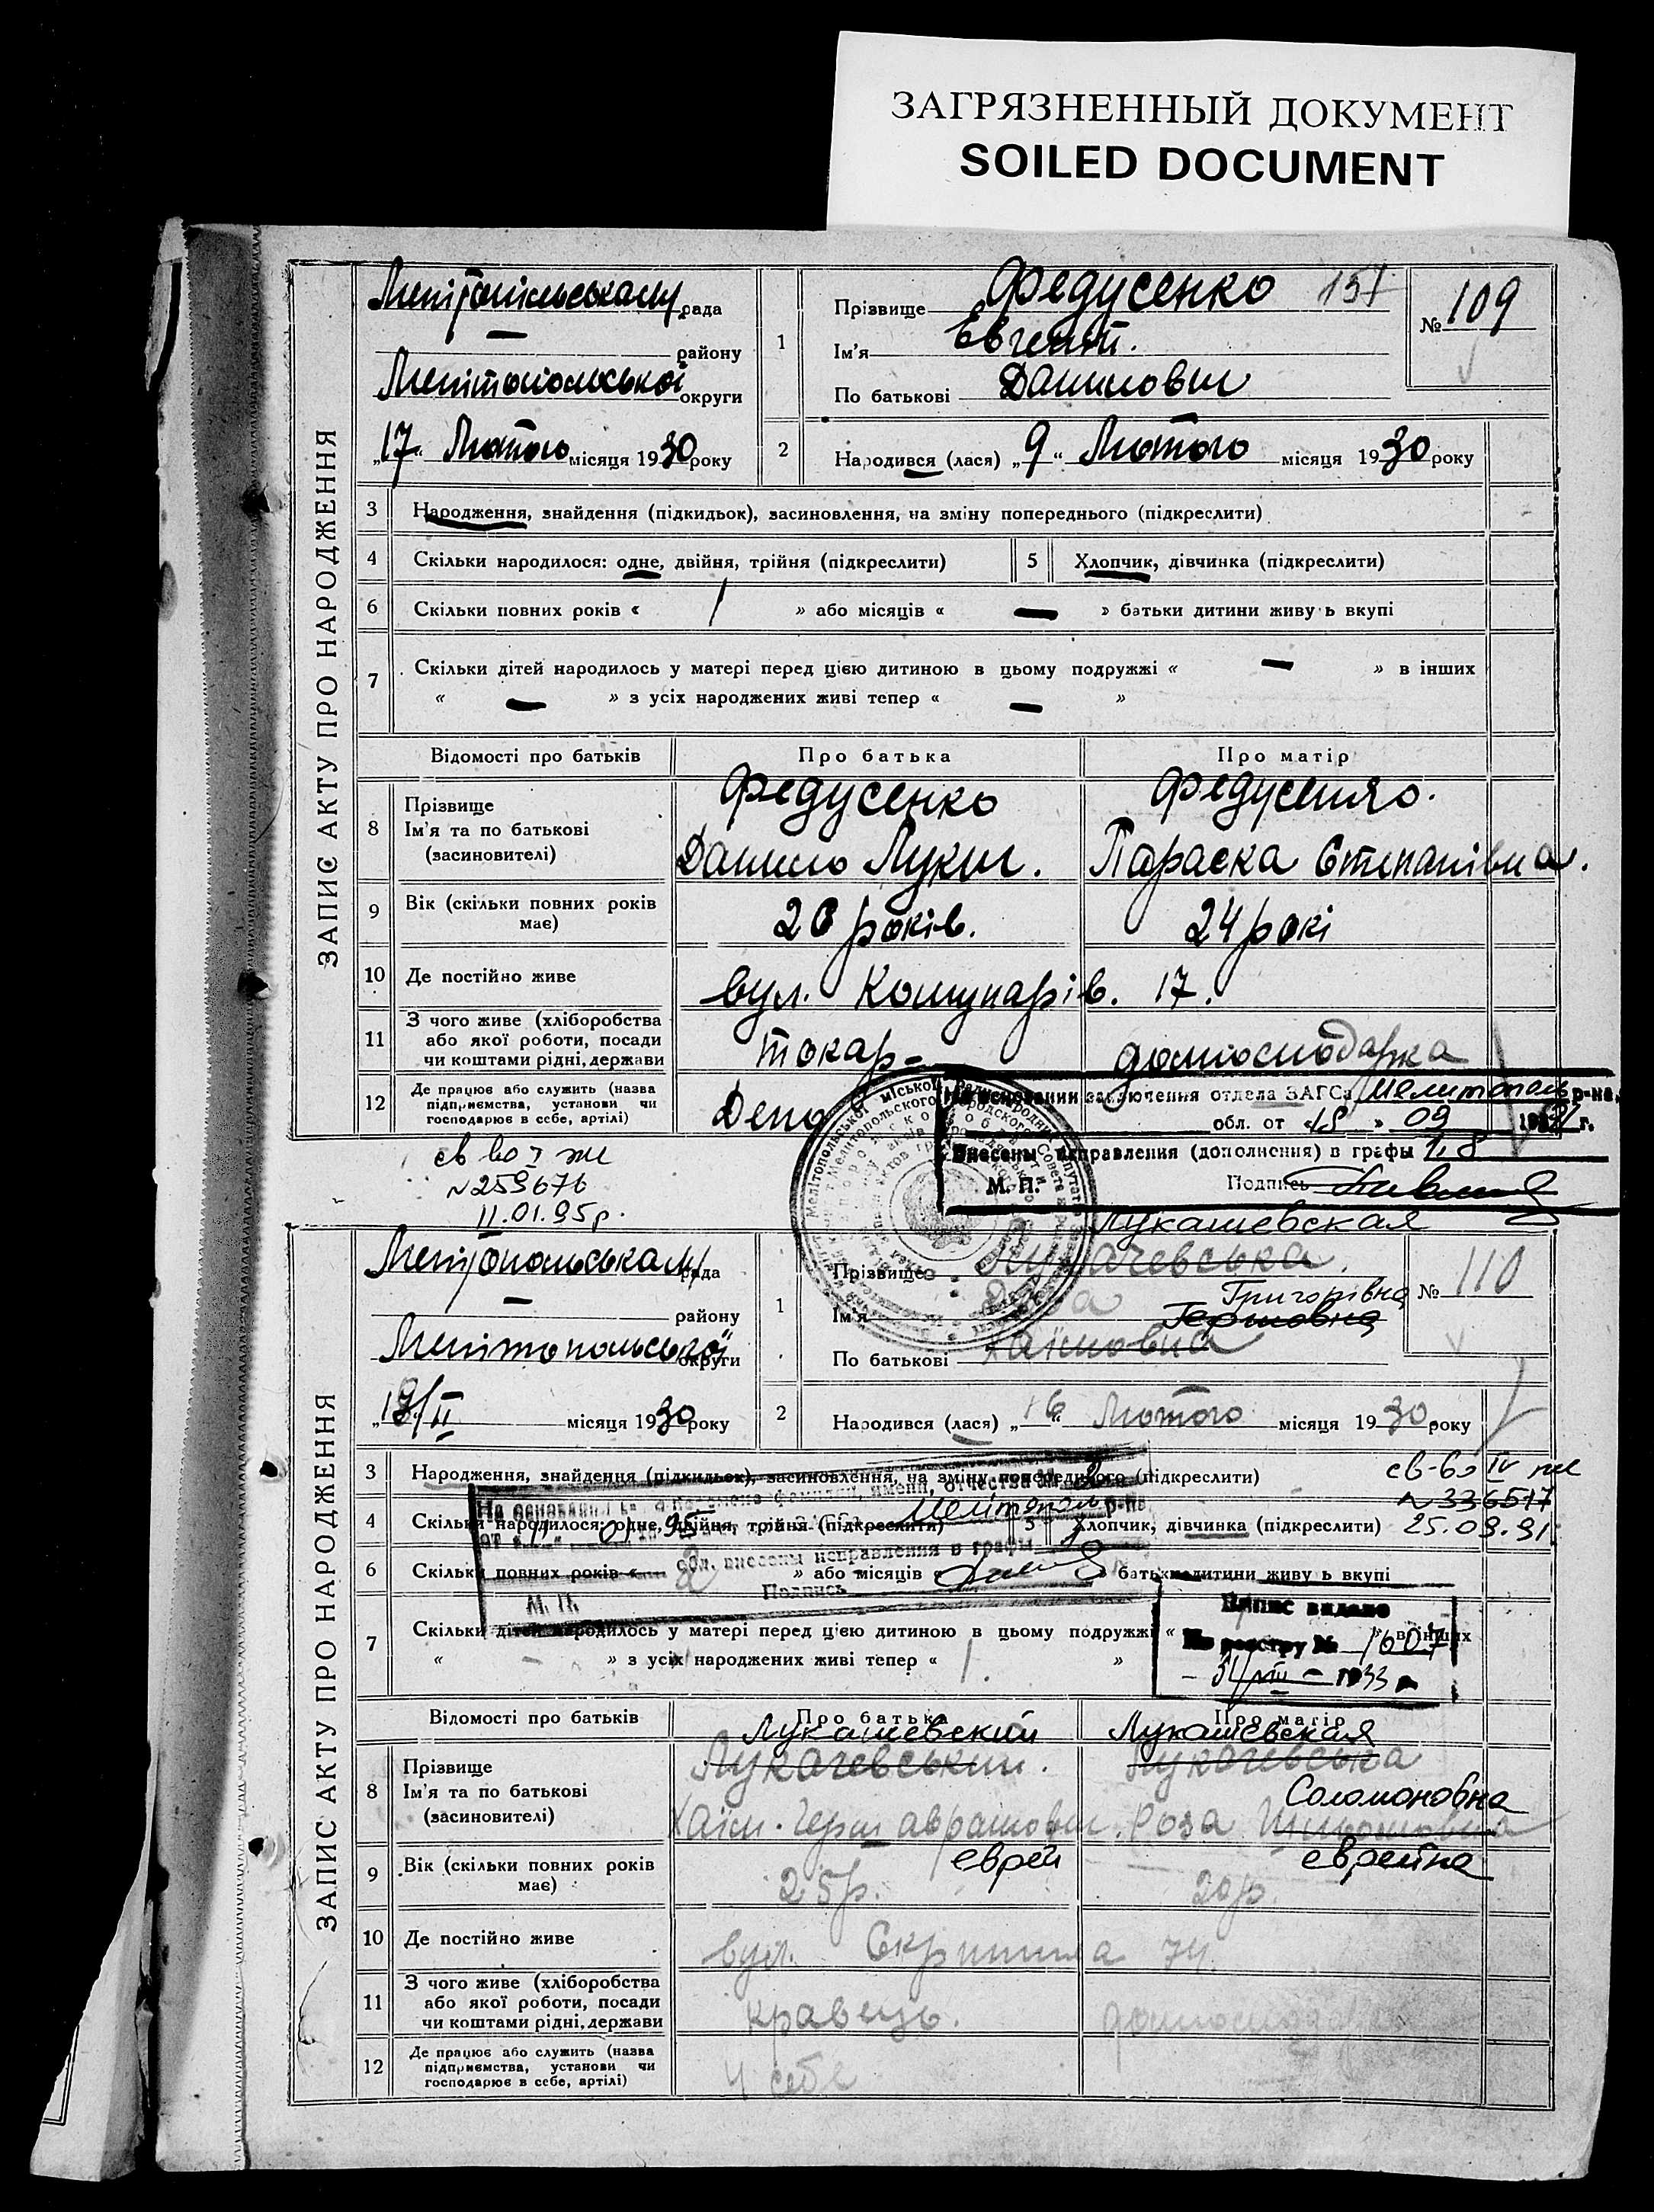 ЗАГРЯЗНЕННЫЙ ДОКУМЕНТ
SOILED DOCUMENT
ЗАПИС АКТУ ПРО НАРОДЖЕННЯ
рада
— району
округи
„17“ Лютого місяця 1930 року
1
Прізвище Федусенко
Ім'я Евгеній.
По батькові Данилович
№ 109
2
Народився (лася) „9“ Лютого місяця 1930 року
3 Народження, знайдення (підкидьок), засиновлення, на зміну попереднього (підкреслити)
4 Скільки народилося: одне, двійня, трійня (підкреслити)
5 Хлопчик, дівчинка (підкреслити)
6 Скільки повних років « 1 » або місяців « — » батьки дитини живуть вкупі
7 Скільки дітей народилось у матері перед цією дитиною в цьому подружжі « — » в інших
« — » з усіх народжених живі тепер « — »
Відомості про батьків Про батька Про матір
8 Прізвище
Ім'я та по батькові
(засиновителі)
Федусенко
Данило Лукич.
Федусенко.
Параска Степанівна.
9 Вік (скільки повних років має)
років.
24 рокі
10 Де постійно живе
вул. Комунарів. 17.
11 З чого живе (хліборобства
або якої роботи, посади
чи коштами рідні, держави
токар-
домгосподарка
12 Де працює або служить (назва
підприємства, установи чи
господарює в себе, артілі)
Депо
На основании заключения отдела ЗАГСа Мелитополь р-на,
обл. от «18» 09
г.
Внесены исправления (дополнения) в графы 1, 8
М. П. Подпись
св во I же
№ 259676
11.01.95р.
ЗАПИС АКТУ ПРО НАРОДЖЕННЯ
рада
— району
округи
місяця 1930 року
1
Лукашевская
Прізвище Лукачевська.
Ім'я
Григорівна
Гершовна
По батькові Хаїмовна
№ 110
2
Народився (лася) „16“ Лютого місяця 1930 року
3 Народження, знайдення (підкидьок), засиновлення, на зміну попереднього (підкреслити)
св-во IV
№ 336517
25.09.91
4 Скільки народилося: одне, двійня, трійня (підкреслити)
5 Хлопчик, дівчинка (підкреслити)
6 Скільки повних років « » або місяців « » батьки дитини живуть вкупі
обл. внесены исправления в графы
Подпись
М. П.
7 Скільки дітей народилось у матері перед цією дитиною в цьому подружжі « » в інших
« — » з усіх народжених живі тепер « 1. »
Випис видано
По реєстру № 1607
1933 р.
Відомості про батьків Про батька Про матір
8 Прізвище
Ім'я та по батькові
(засиновителі)
Лукашевский
Лукачевський.
Хаїм-Герш Аврамович.
Лукашевская
Лукачевська
Соломоновна
Роза
9 Вік (скільки повних років має)
еврей
25р.
еврейка
20р.
10 Де постійно живе
вул. Скрипника 74.
11 З чого живе (хліборобства
або якої роботи, посади
чи коштами рідні, держави
кравець.
домгосподарка
12 Де працює або служить (назва
підприємства, установи чи
господарює в себе, артілі)
У себе